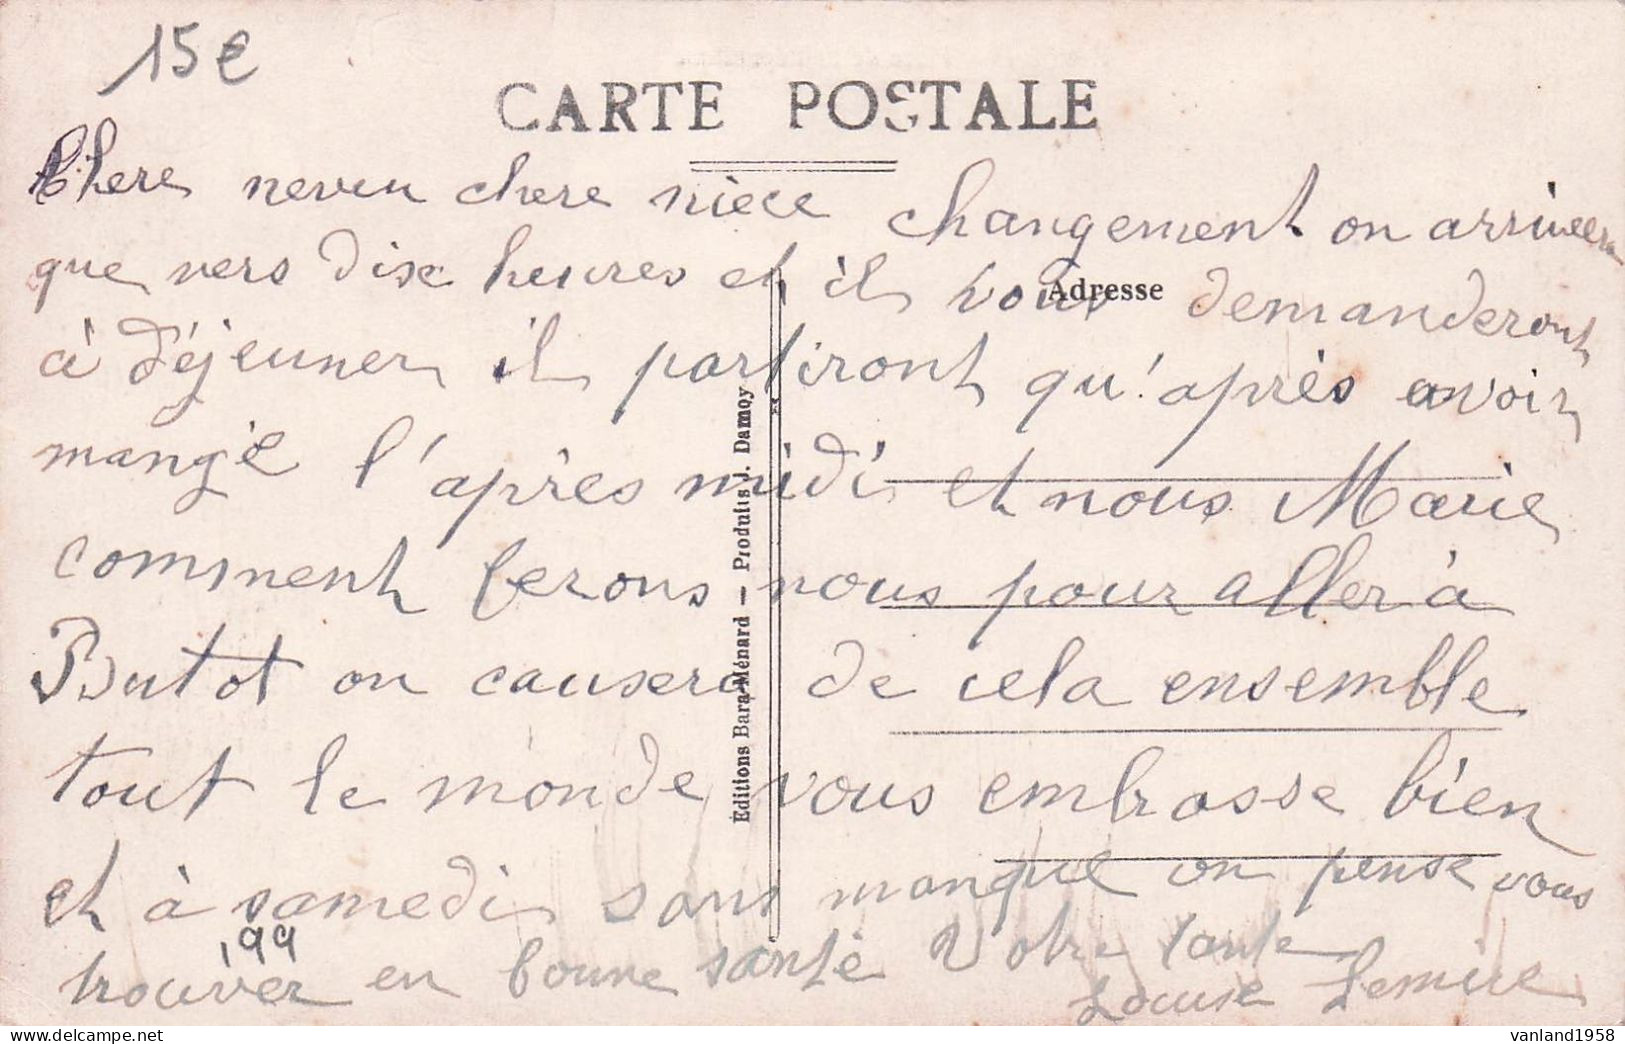 15€
CARTE POSTALE
Chere neveu chere nièce changement on arrivera
que vers dix heures et il vous demanderont
Adresse
à déjeuner il partiront qu'après avoir
mangé l'après midi et nous Marie
comment ferons nous pour aller à
Butot on causera de cela ensemble
tout le monde vous embrasse bien
et à samedi sans manque on pense vous
trouver en bonne santé Votre tante
Louise Lemire
199
Editions Bara-Ménard — Produits J. Damoy
vanland1958